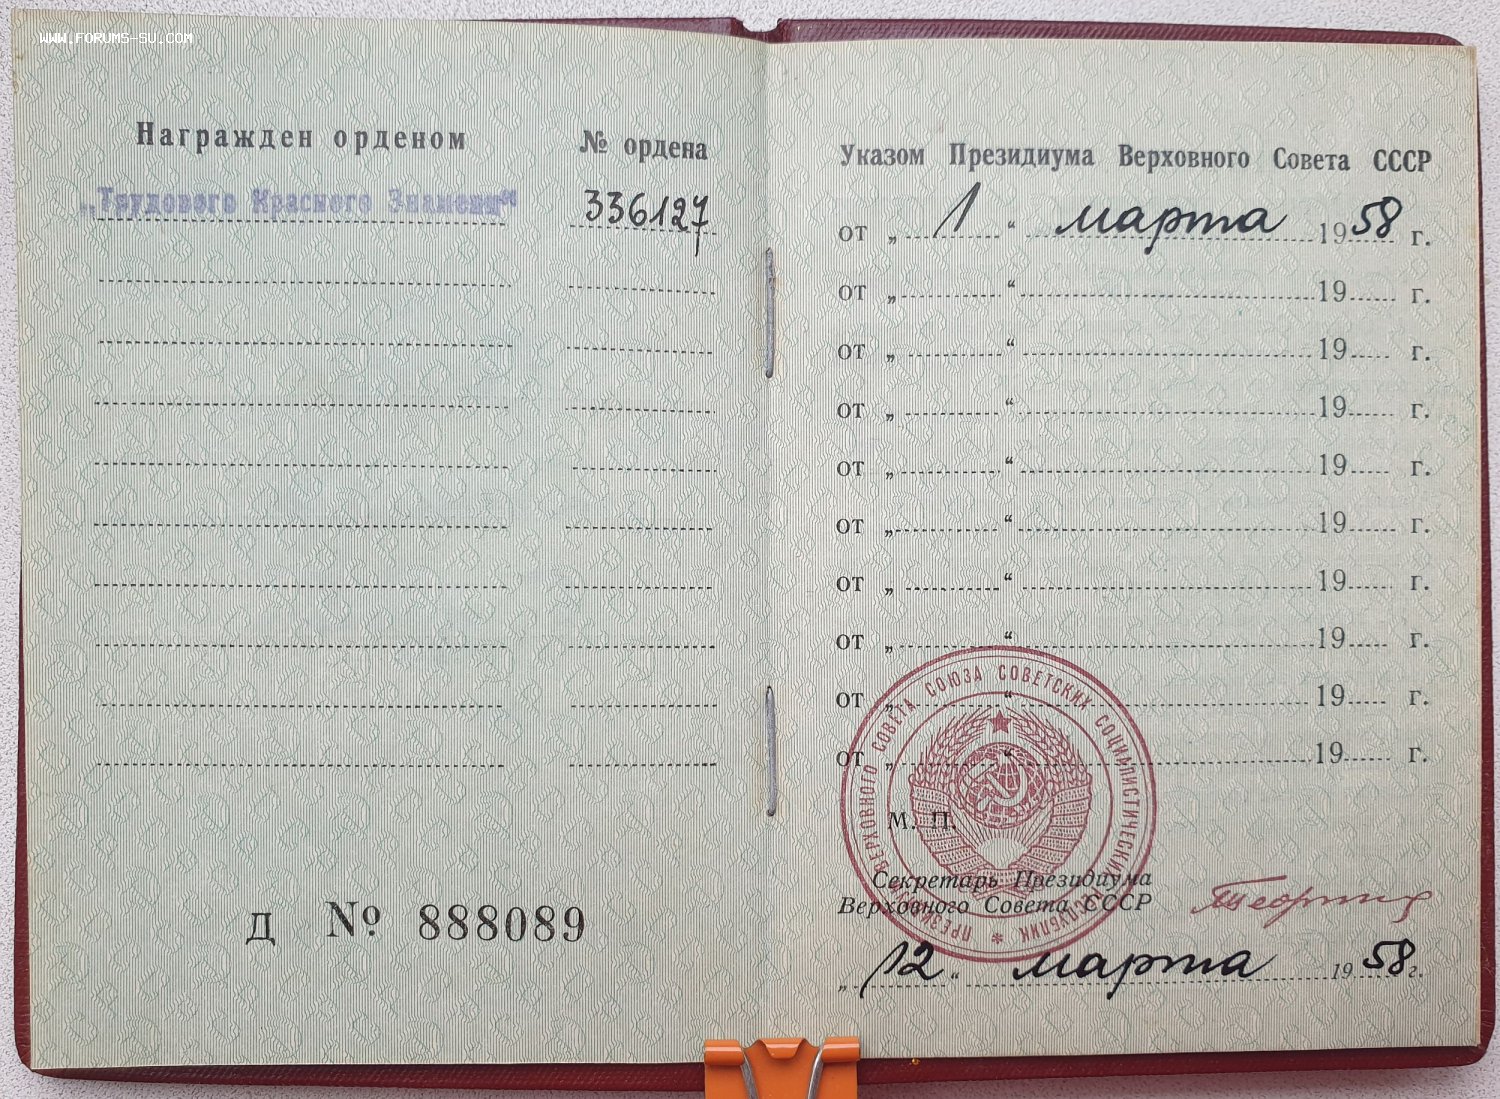 WWW.FORUMS-SU.COM
Награжден орденом № ордена
„Трудового Красного Знамени“ 336127
Д № 888089
Указом Президиума Верховного Совета СССР
от „ 1 “ марта 1958 г.
от „ “ 19 г.
от „ “ 19 г.
от „ “ 19 г.
от „ “ 19 г.
от „ “ 19 г.
от „ “ 19 г.
от „ “ 19 г.
от „ “ 19 г.
от „ “ 19 г.
ПРЕЗИДИУМ ВЕРХОВНОГО СОВЕТА СОЮЗА СОВЕТСКИХ СОЦИАЛИСТИЧЕСКИХ РЕСПУБЛИК
М. П.
Секретарь Президиума
Верховного Совета СССР
„ 12 “ марта 1958 г.